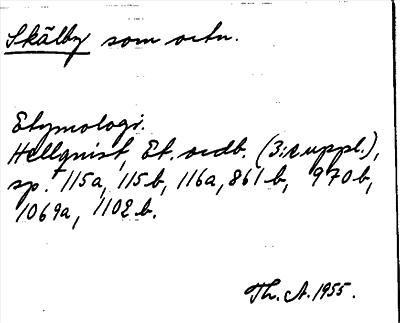 Skälby som ortn.
Etymologi.
Hellquist, Et. ordb. (3:e uppl.),
sp. 115a, 115b, 116a, 861b, 970b,
1069a, 1102b.
Th. A. 1955.